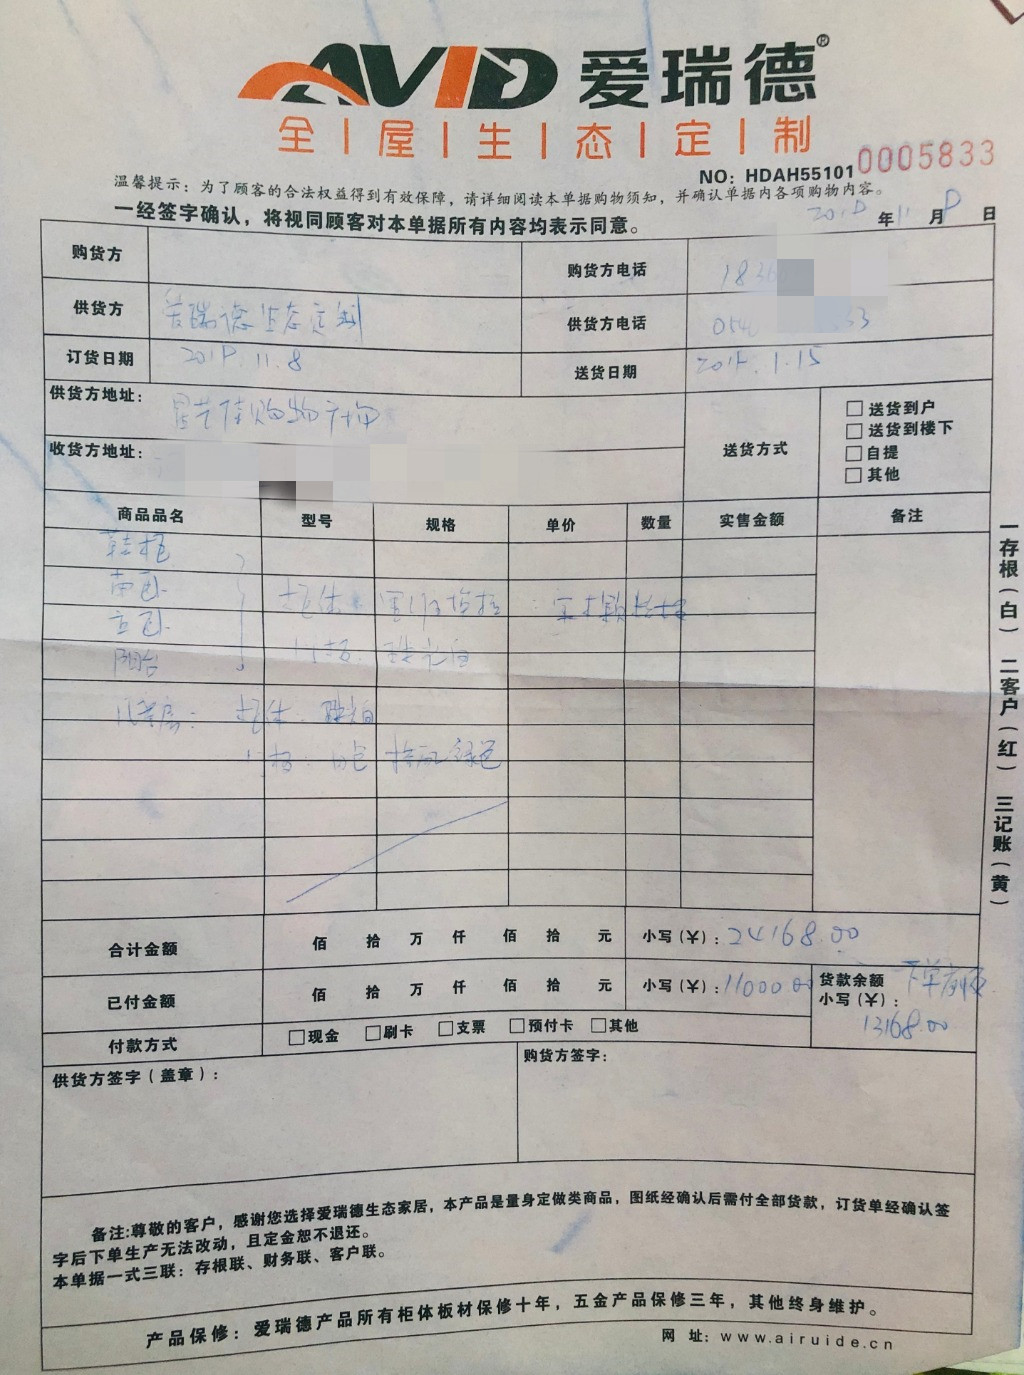 AVID 爱瑞德®
全|屋|生|态|定|制
NO: HDAH55101 0005833
温馨提示：为了顾客的合法权益得到有效保障，请详细阅读本单据购物须知，并确认单据内各项购物内容。
一经签字确认，将视同顾客对本单据所有内容均表示同意。
年11月8日
购货方 购货方电话
供货方 爱瑞德生态定制 供货方电话
订货日期 11.8 送货日期 1.15
供货方地址： 购物广场
收货方地址：
送货方式 □送货到户
□送货到楼下
□自提
□其他
商品品名 型号 规格 单价 数量 实售金额 备注
鞋柜
南卧 柜体 实木颗粒板
主卧
阳台 门板
柜体
门板：白色 绿色
合计金额 佰 拾 万 仟 佰 拾 元 小写(¥)：24168.00
已付金额 佰 拾 万 仟 佰 拾 元 小写(¥)：11000.00 货款余额 下单前
小写(¥)：
13168.00
付款方式 □现金 □刷卡 □支票 □预付卡 □其他
供货方签字（盖章）： 购货方签字：
备注:尊敬的客户，感谢您选择爱瑞德生态家居，本产品是量身定做类商品，图纸经确认后需付全部货款，订货单经确认签
字后下单生产无法改动，且定金恕不退还。
本单据一式三联：存根联、财务联、客户联。
产品保修：爱瑞德产品所有柜体板材保修十年，五金产品保修三年，其他终身维护。
网 址：www.airuide.cn
一存根（白） 二客户（红） 三记账（黄）